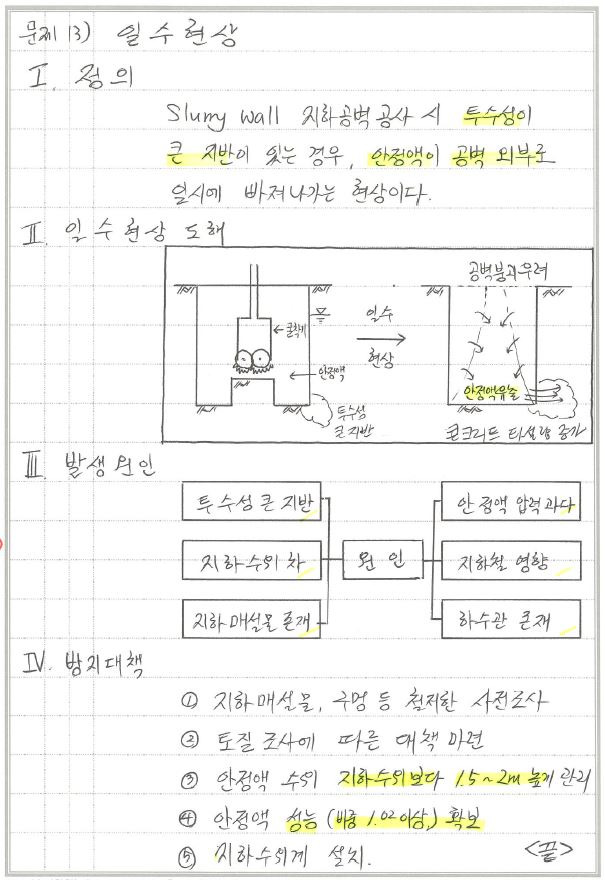 문제 13) 일수현상
Ⅰ. 정의
Slurry wall 지하공벽공사 시 투수성이
큰 지반이 있는 경우, 안정액이 공벽 외부로
일시에 빠져나가는 현상이다.
Ⅱ. 일수현상 도해
공벽붕괴우려
굴착기
일수
현상
안정액
안정액유출
투수성
큰지반
콘크리트 타설량 증가
Ⅲ. 발생원인
투수성 큰 지반
안정액 압력과다
지하수위 차
원인
지하철 영향
지하매설물 존재
하수관 존재
Ⅳ. 방지대책
① 지하매설물, 구멍 등 철저한 사전조사
② 토질조사에 따른 대책 마련
③ 안정액 수위 지하수위보다 1.5~2m 높게 관리
④ 안정액 성능 (비중 1.02이상) 확보
⑤ 지하수위계 설치.
<끝>